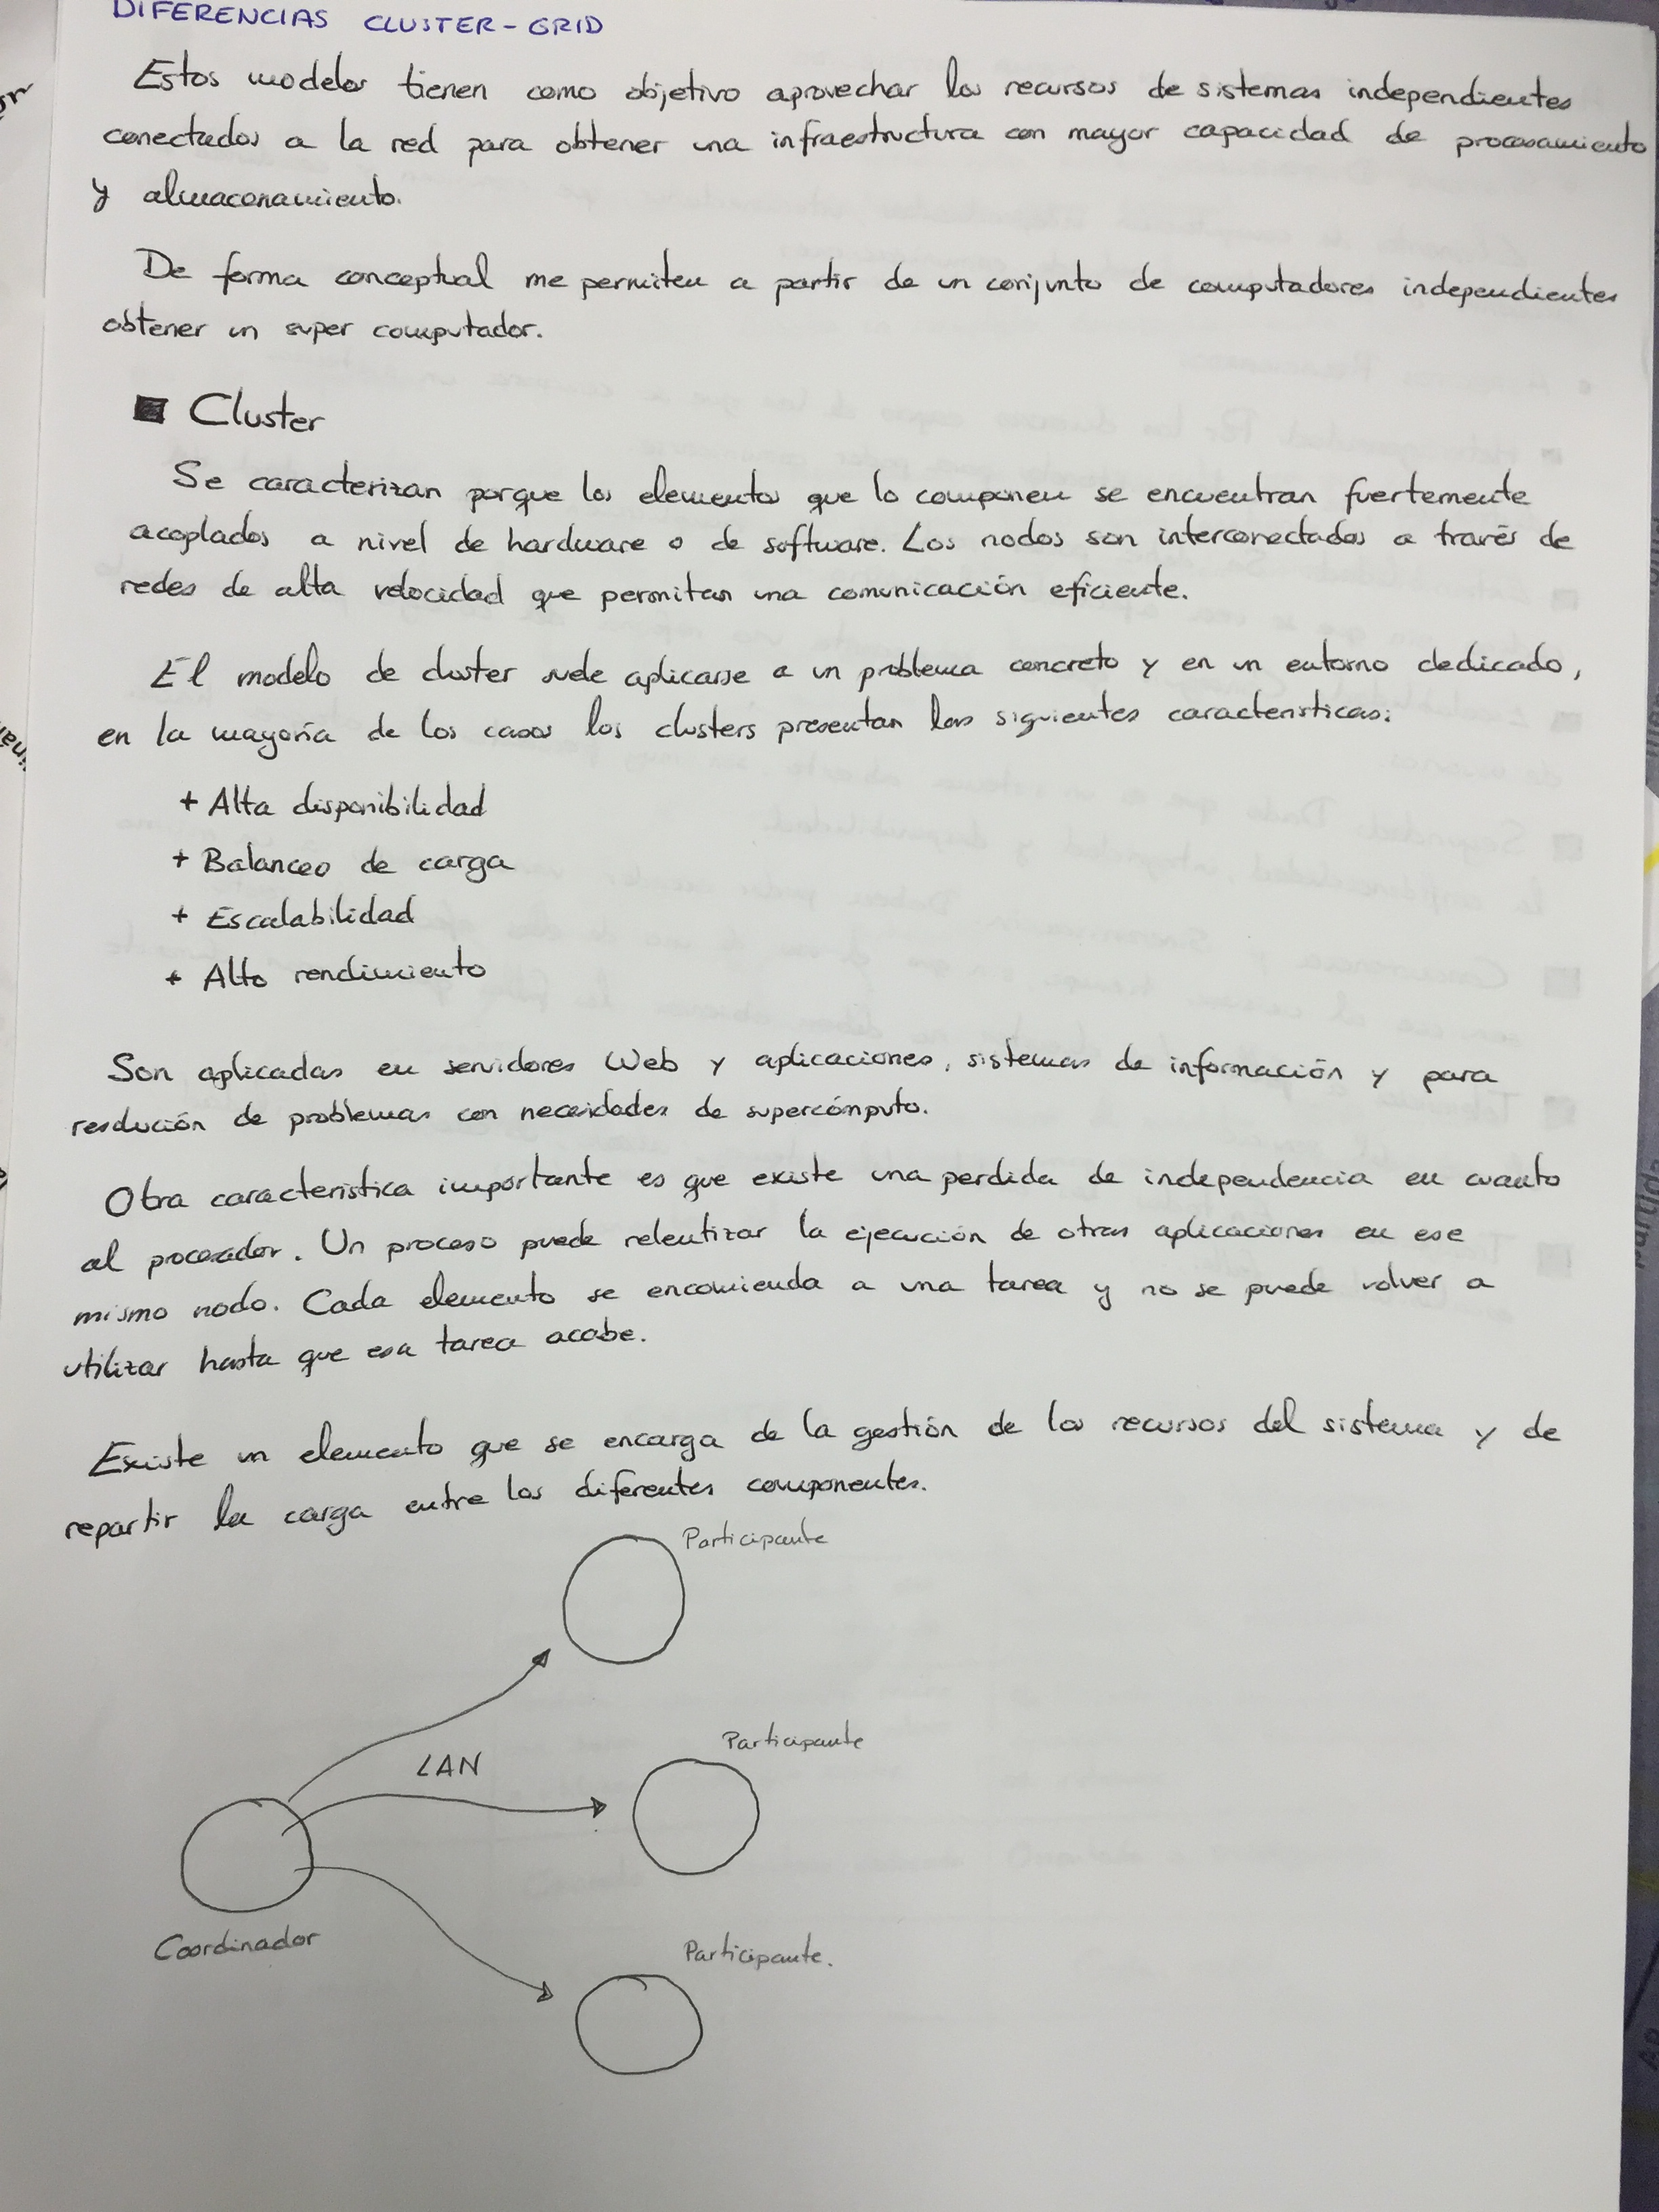 DIFERENCIAS CLUSTER-GRID
Estos modelos tienen como objetivo aprovechar los recursos de sistemas independientes
conectados a la red para obtener una infraestructura con mayor capacidad de procesamiento
y almacenamiento.
De forma conceptual me permiten a partir de un conjunto de computadores independientes
obtener un super computador.
■ Cluster
Se caracterizan porque los elementos que lo componen se encuentran fuertemente
acoplados a nivel de hardware o de software. Los nodos son interconectados a través de
redes de alta velocidad que permitan una comunicación eficiente.
El modelo de cluster suele aplicarse a un problema concreto y en un entorno dedicado,
en la mayoría de los casos los clusters presentan las siguientes características:
+ Alta disponibilidad
+ Balanceo de carga
+ Escalabilidad
+ Alto rendimiento
Son aplicadas en servidores Web y aplicaciones, sistemas de información y para
resolución de problemas con necesidades de supercómputo.
Otra característica importante es que existe una perdida de independencia en cuanto
al procesador. Un proceso puede relentizar la ejecución de otras aplicaciones en ese
mismo nodo. Cada elemento se encomienda a una tarea y no se puede volver a
utilizar hasta que esa tarea acabe.
Existe un elemento que se encarga de la gestión de los recursos del sistema y de
repartir la carga entre los diferentes componentes.
Participante
Participante
LAN
Coordinador
Participante.